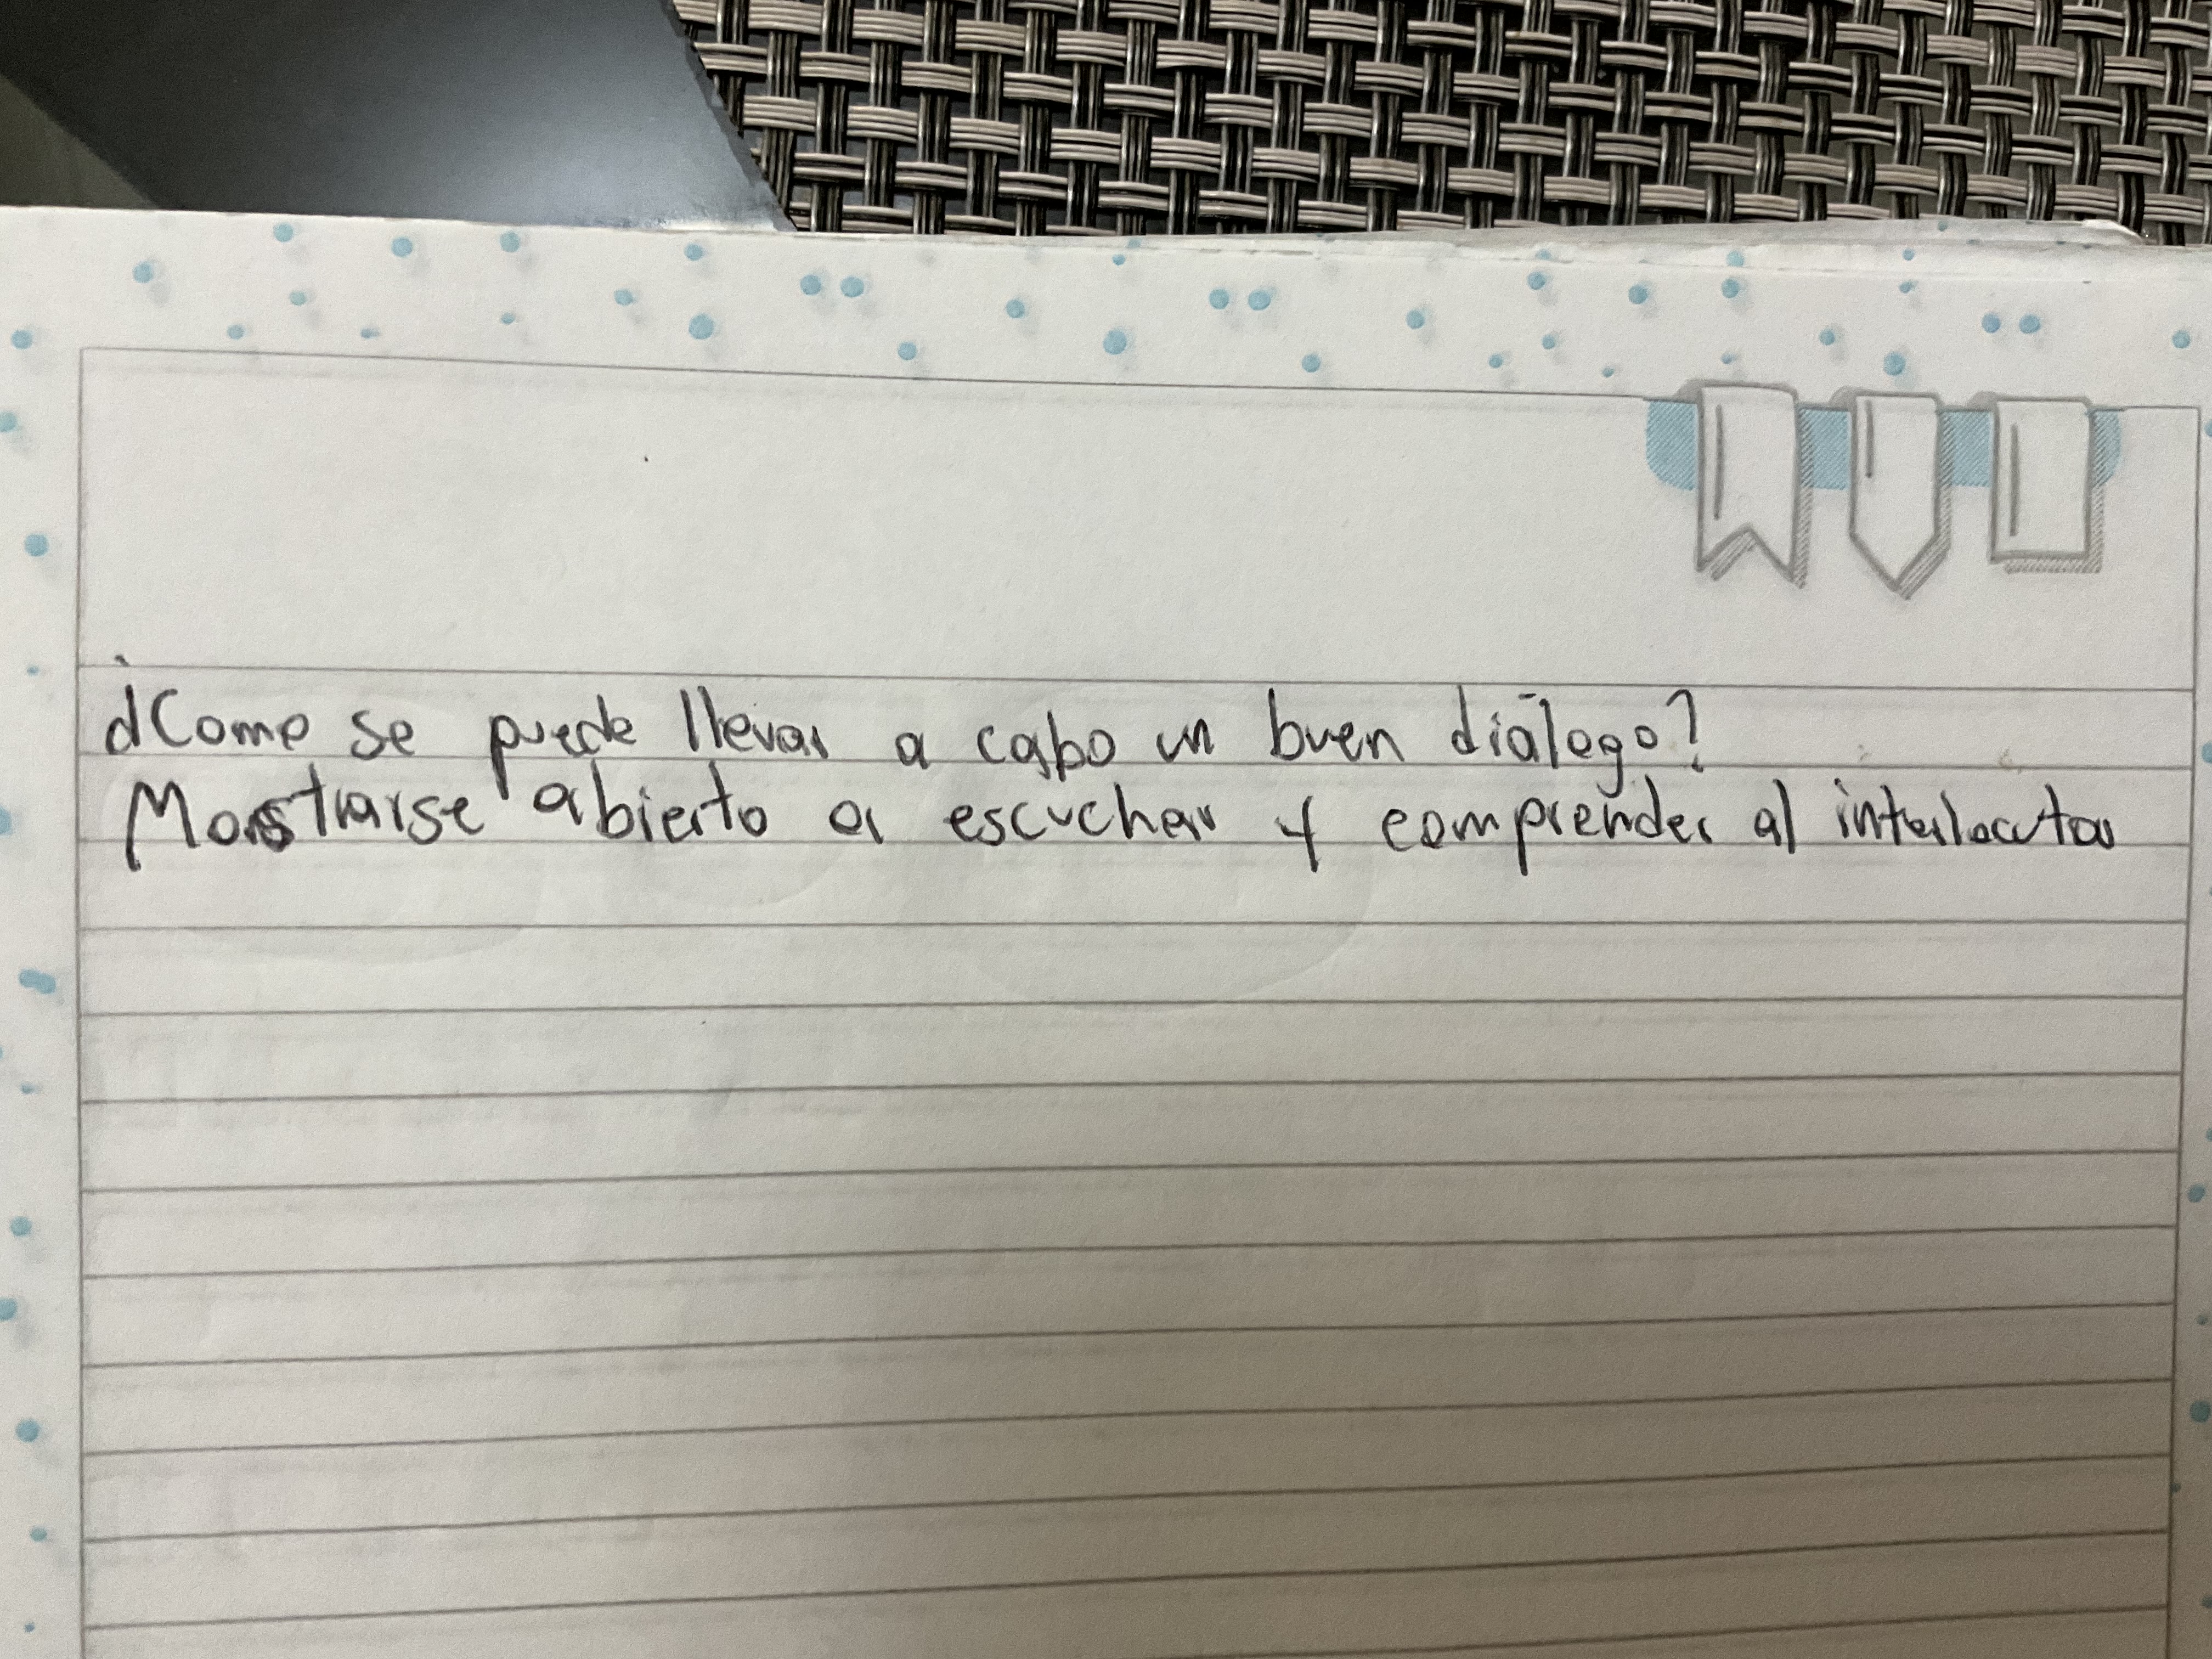 ¿Como se puede llevar a cabo un buen diálogo?
Mostrarse abierto a escuchar y comprender al interlocutor